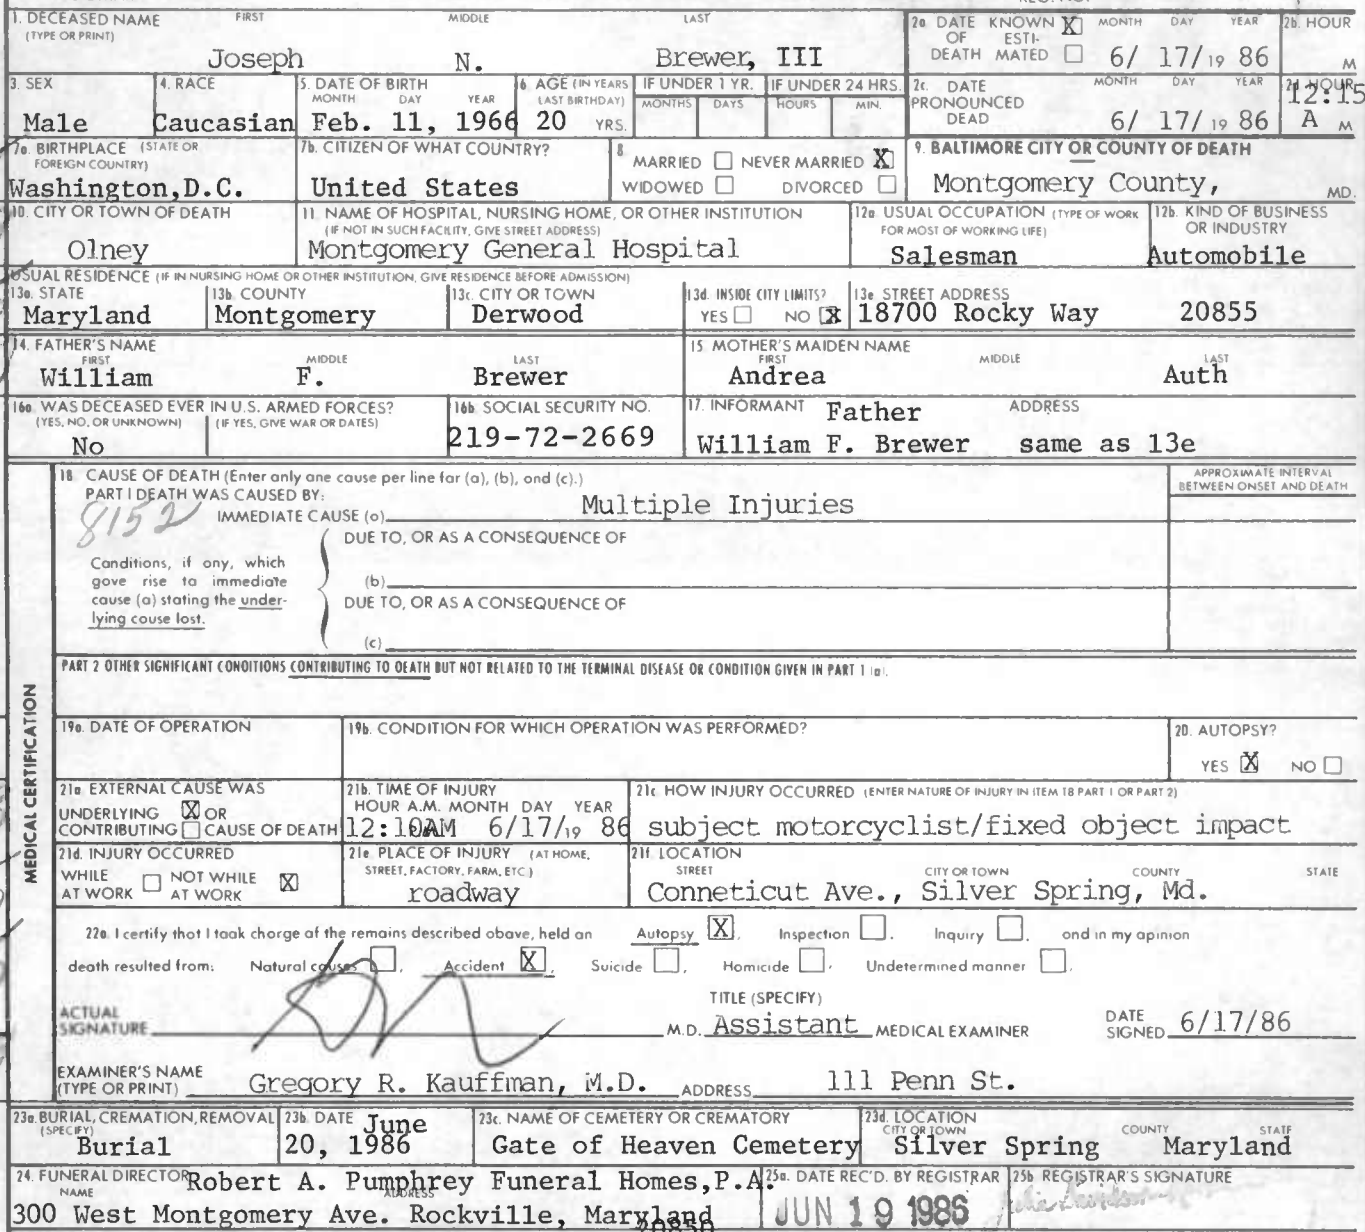 1. DECEASED NAME (TYPE OR PRINT) FIRST MIDDLE LAST
Joseph N. Brewer, III
2a. DATE OF DEATH KNOWN X ESTIMATED MONTH DAY YEAR 6/ 17/19 86
2b. HOUR M
3. SEX Male
4. RACE Caucasian
5. DATE OF BIRTH MONTH DAY YEAR Feb. 11, 1966
6. AGE (IN YEARS LAST BIRTHDAY) 20 YRS.
IF UNDER 1 YR. MONTHS DAYS
IF UNDER 24 HRS. HOURS MIN.
2c. DATE PRONOUNCED DEAD MONTH DAY YEAR 6/ 17/19 86
2d HOUR 12:15 A M
7a. BIRTHPLACE (STATE OR FOREIGN COUNTRY) Washington,D.C.
7b. CITIZEN OF WHAT COUNTRY? United States
8. MARRIED NEVER MARRIED X
WIDOWED DIVORCED
9. BALTIMORE CITY OR COUNTY OF DEATH Montgomery County, MD.
10. CITY OR TOWN OF DEATH Olney
11. NAME OF HOSPITAL, NURSING HOME, OR OTHER INSTITUTION
(IF NOT IN SUCH FACILITY, GIVE STREET ADDRESS)
Montgomery General Hospital
12a. USUAL OCCUPATION (TYPE OF WORK FOR MOST OF WORKING LIFE) Salesman
12b. KIND OF BUSINESS OR INDUSTRY Automobile
USUAL RESIDENCE (IF IN NURSING HOME OR OTHER INSTITUTION, GIVE RESIDENCE BEFORE ADMISSION)
13a. STATE Maryland
13b. COUNTY Montgomery
13c. CITY OR TOWN Derwood
13d. INSIDE CITY LIMITS? YES NO X
13e STREET ADDRESS 18700 Rocky Way 20855
14. FATHER'S NAME FIRST MIDDLE LAST
William F. Brewer
15. MOTHER'S MAIDEN NAME FIRST MIDDLE LAST
Andrea Auth
16a. WAS DECEASED EVER IN U.S. ARMED FORCES?
(YES, NO, OR UNKNOWN) (IF YES, GIVE WAR OR DATES)
No
16b. SOCIAL SECURITY NO. 219-72-2669
17. INFORMANT Father ADDRESS
William F. Brewer same as 13e
MEDICAL CERTIFICATION
18 CAUSE OF DEATH (Enter only one cause per line for (a), (b), and (c).)
APPROXIMATE INTERVAL BETWEEN ONSET AND DEATH
PART I DEATH WAS CAUSED BY:
8152
IMMEDIATE CAUSE (a) Multiple Injuries
DUE TO, OR AS A CONSEQUENCE OF
Conditions, if any, which gave rise to immediate cause (a) stating the underlying cause last.
(b)
DUE TO, OR AS A CONSEQUENCE OF
(c)
PART 2 OTHER SIGNIFICANT CONDITIONS CONTRIBUTING TO DEATH BUT NOT RELATED TO THE TERMINAL DISEASE OR CONDITION GIVEN IN PART 1 (a).
19a. DATE OF OPERATION
19b. CONDITION FOR WHICH OPERATION WAS PERFORMED?
20. AUTOPSY? YES X NO
21a. EXTERNAL CAUSE WAS
UNDERLYING X OR
CONTRIBUTING CAUSE OF DEATH
21b. TIME OF INJURY
HOUR A.M. MONTH DAY YEAR
12:10AM 6/17/19 86
21c. HOW INJURY OCCURRED (ENTER NATURE OF INJURY IN ITEM 18 PART 1 OR PART 2)
subject motorcyclist/fixed object impact
21d. INJURY OCCURRED
WHILE AT WORK NOT WHILE AT WORK X
21e. PLACE OF INJURY (AT HOME, STREET, FACTORY, FARM, ETC.)
roadway
21f. LOCATION
STREET CITY OR TOWN COUNTY STATE
Conneticut Ave., Silver Spring, Md.
22a. I certify that I took charge of the remains described above, held an Autopsy X, Inspection, Inquiry, and in my opinion
death resulted from: Natural causes, Accident X, Suicide, Homicide, Undetermined manner.
ACTUAL SIGNATURE M.D.
TITLE (SPECIFY) Assistant MEDICAL EXAMINER
DATE SIGNED 6/17/86
EXAMINER'S NAME (TYPE OR PRINT) Gregory R. Kauffman, M.D. ADDRESS 111 Penn St.
23a. BURIAL, CREMATION, REMOVAL (SPECIFY) Burial
23b. DATE June 20, 1986
23c. NAME OF CEMETERY OR CREMATORY Gate of Heaven Cemetery
23d. LOCATION CITY OR TOWN COUNTY STATE
Silver Spring Maryland
24. FUNERAL DIRECTOR NAME ADDRESS
Robert A. Pumphrey Funeral Homes,P.A.
300 West Montgomery Ave. Rockville, Maryland 20850
25a. DATE REC'D. BY REGISTRAR JUN 19 1986
25b REGISTRAR'S SIGNATURE